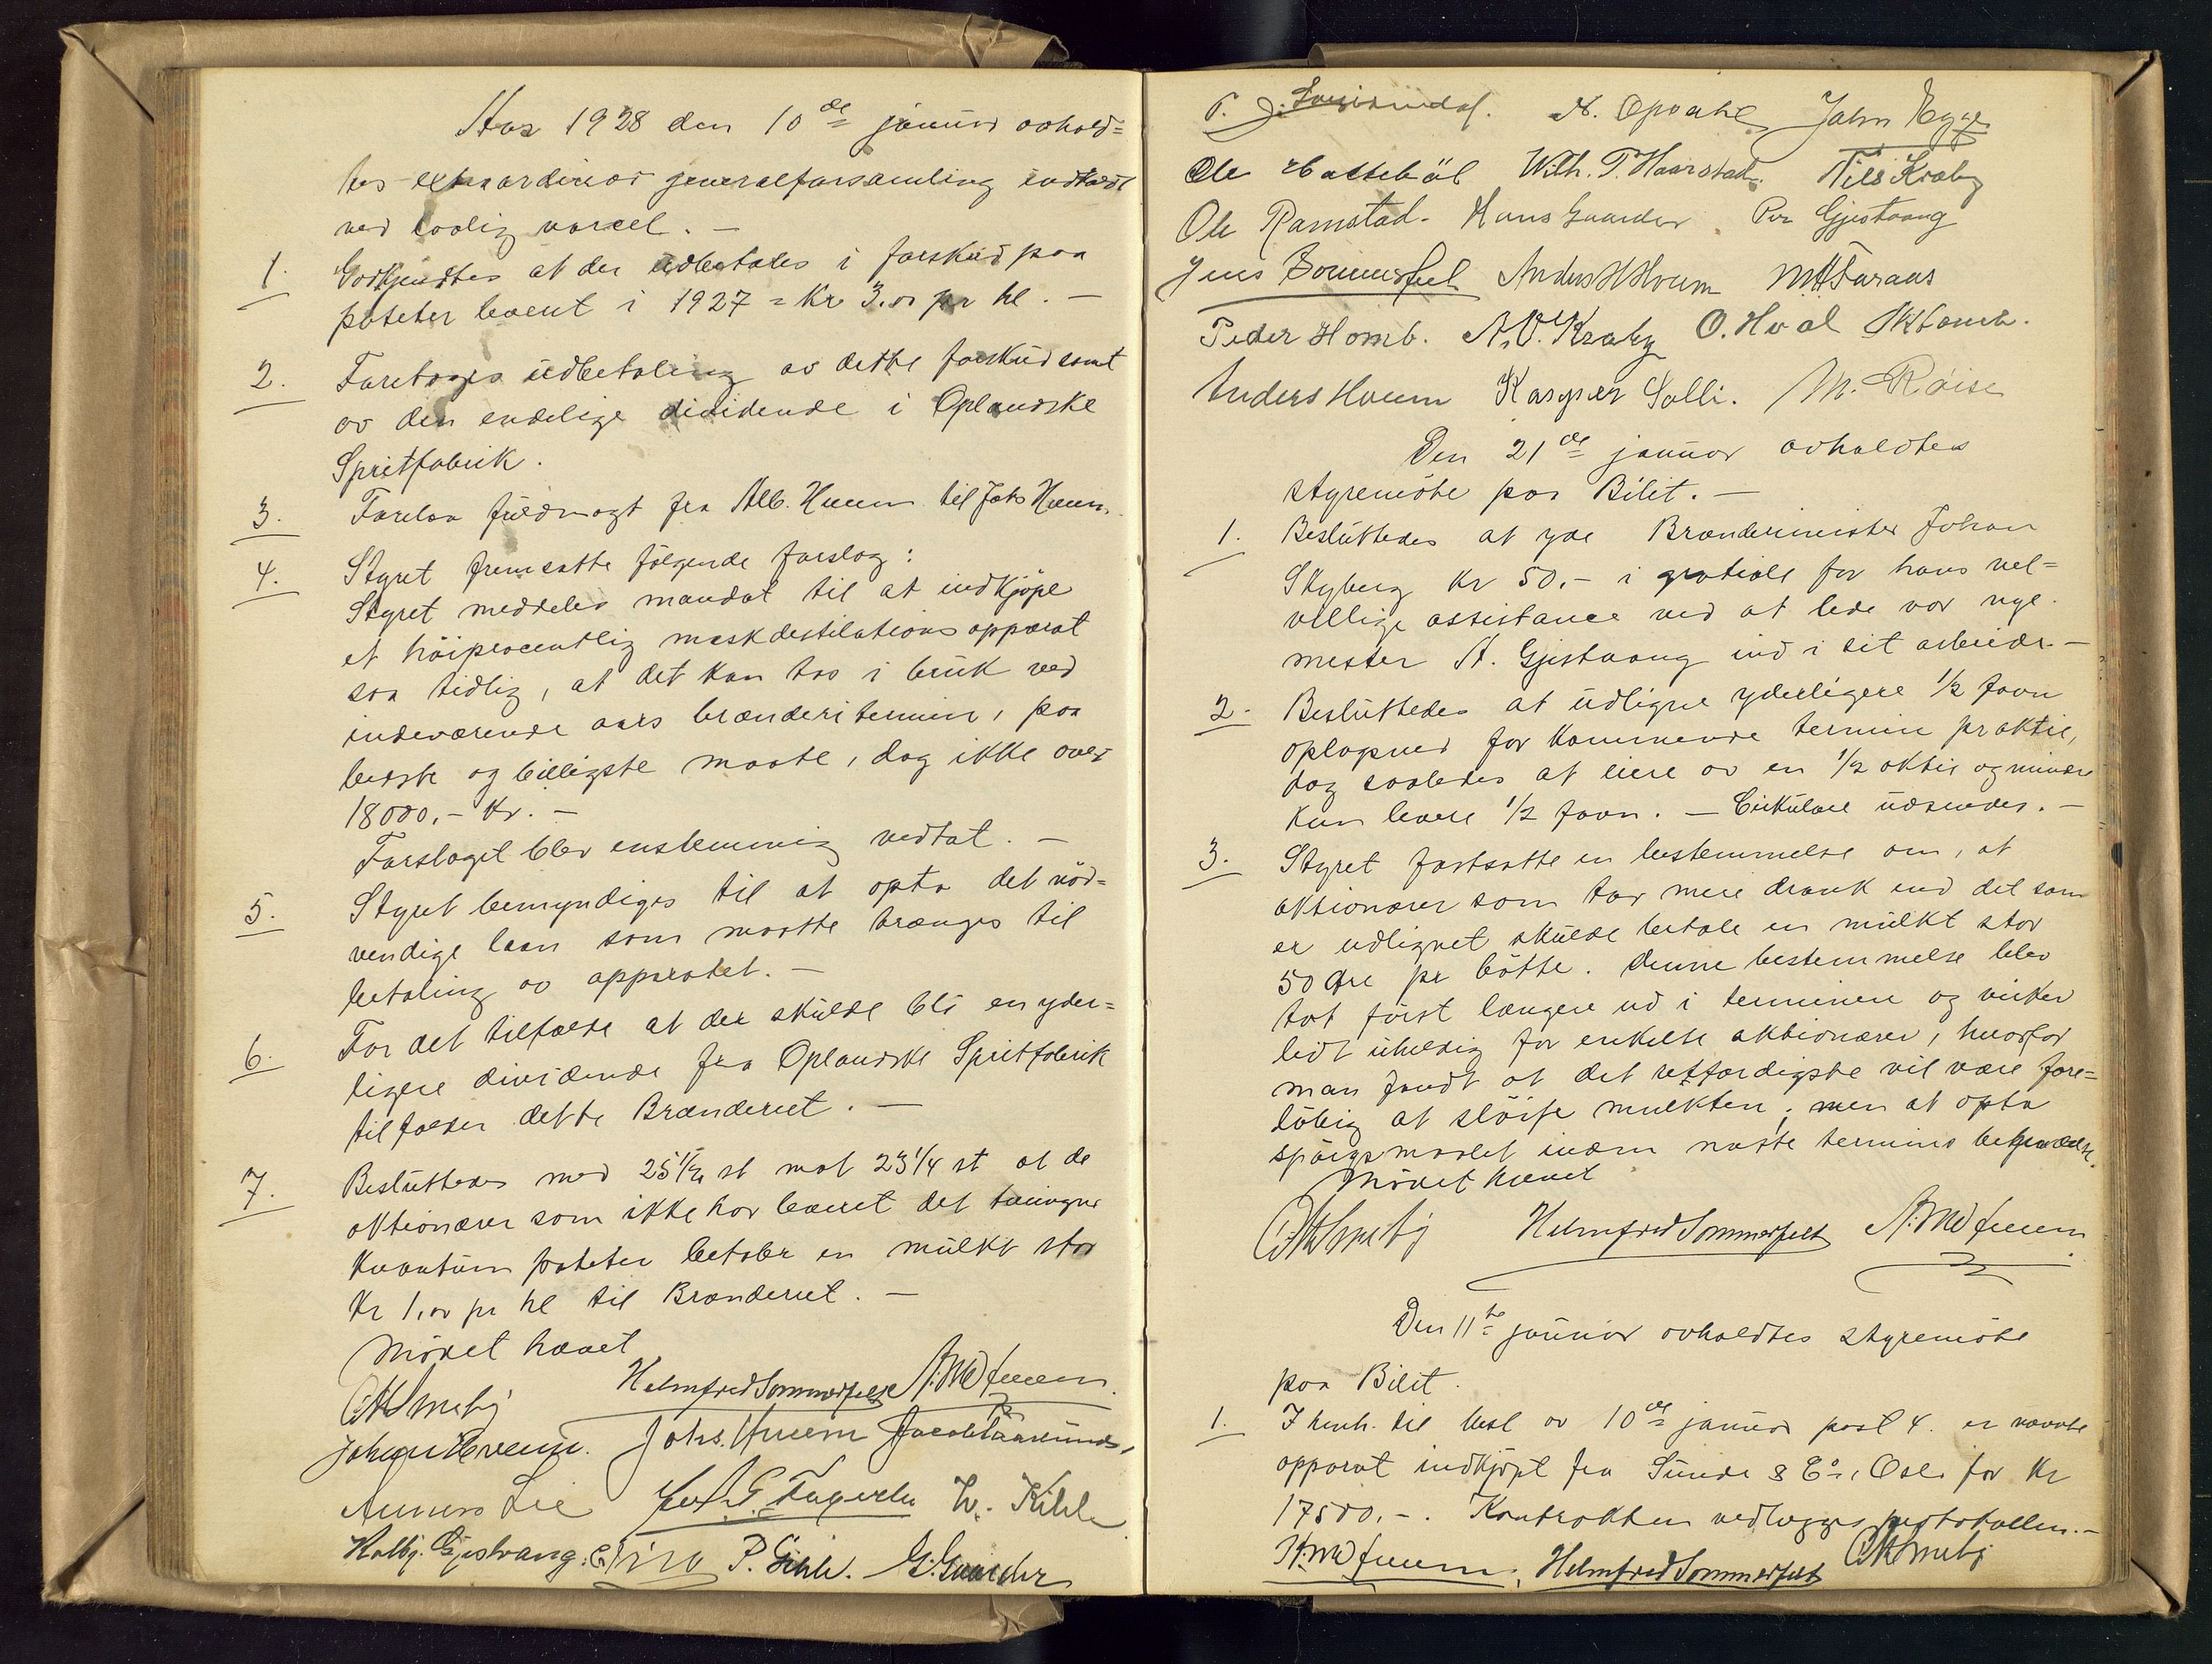 Aar 1928 den 10de januar avhold=
tes extraordinær generalforsamling indkaldt
ved lovlig varsel. –
1. Godkjendtes at der udbetales i forskud paa
poteter levert i 1927 = Kr 3.00 pr hl. –
2. Foretages udbetaling av dette forskud samt
av den endelige dividende i Oplandske
Spritfabrik.
3. Forelaa fuldmagt fra Alb. Huem til Johs Huem.
4. Styret fremsatte følgende forslag:
Styret meddeles mandat til at indkjøpe
et høiprocentlig maskdestilations apparat
saa tidlig, at det kan tas i bruk ved
indeværende aars brænderitermin, paa
bedste og billigste maate, dog ikke over
18000,- Kr. –
Forslaget blev enstemmig vedtat. –
5. Styret bemyndiges til at opta det nød=
vendige laan som maatte trænges til
betaling av apparatet. –
6. For det tilfælde at der skulde bli en yder=
ligere dividende fra Oplandske Spritfabrik
tilfalder dette Brænderiet. –
7. Besluttedes med 25 1/4 st mot 23 1/4 st at de
aktionærer som ikke har levert det tvungne
kvantum poteter betaler en mulkt stor
Kr 1,00 pr hl til Brænderiet. –
Møtet hævet
Helmfred Sommerfelt
Johs. Huem
Lie Fagerlie W. Kihle
Halbj. Gjestvang. P. Gihle. G. Gaarder
N. Opsahl John Hygge
Ole Wilh. T. Haarstad. Nils Kraby
Ole Ramstad. Hans Gaarder Per Gjestvang
Jens Sommerfelt Anders H Hveem
Peder Homb. A. O. Kraby O. Hval
Anders Hveem Kasper Solli. M. Røise
Den 21de januar avholdtes
styremøte paa Bilit. –
1. Besluttedes at yde Brænderimester Johan
Skyberg kr 50,- i gratiale for hans vel=
villige assistance ved at lede vor nye
mester A. Gjestvang ind i sit arbeide. –
2. Besluttedes at udligne yderligere 1/2 favn
oplagsved for kommende termin pr aktie,
dog saaledes at eiere av en 1/2 aktie og mindre
kun levere 1/2 favn. – Cirkulære udsendes. –
3. Styret fastsatte en bestemmelse om, at
aktionærer som tar mere drank end det som
er udlignet skulde betale en mulkt stor
50 øre pr bøtte. Denne bestemmelse blev
tat først længere ud i terminen og virker
lidt uheldig for enkelte aktionærer, hvorfor
man fandt at det retfærdigste vil være fore=
løbig at sløife mulkten; men at opta
spørgsmaalet inden næste termins begyndelse.
Møtet hævet
Helmfred Sommerfelt
Den 11te januar avholdtes styremøte
paa Bilit.
1. I henh. til besl av 10de januar post 4. er nævnte
apparat indkjøpt fra Sunde & Co, Oslo for Kr
17500.-. Kontrakten vedlægges protokollen. –
Helmfred Sommerfelt